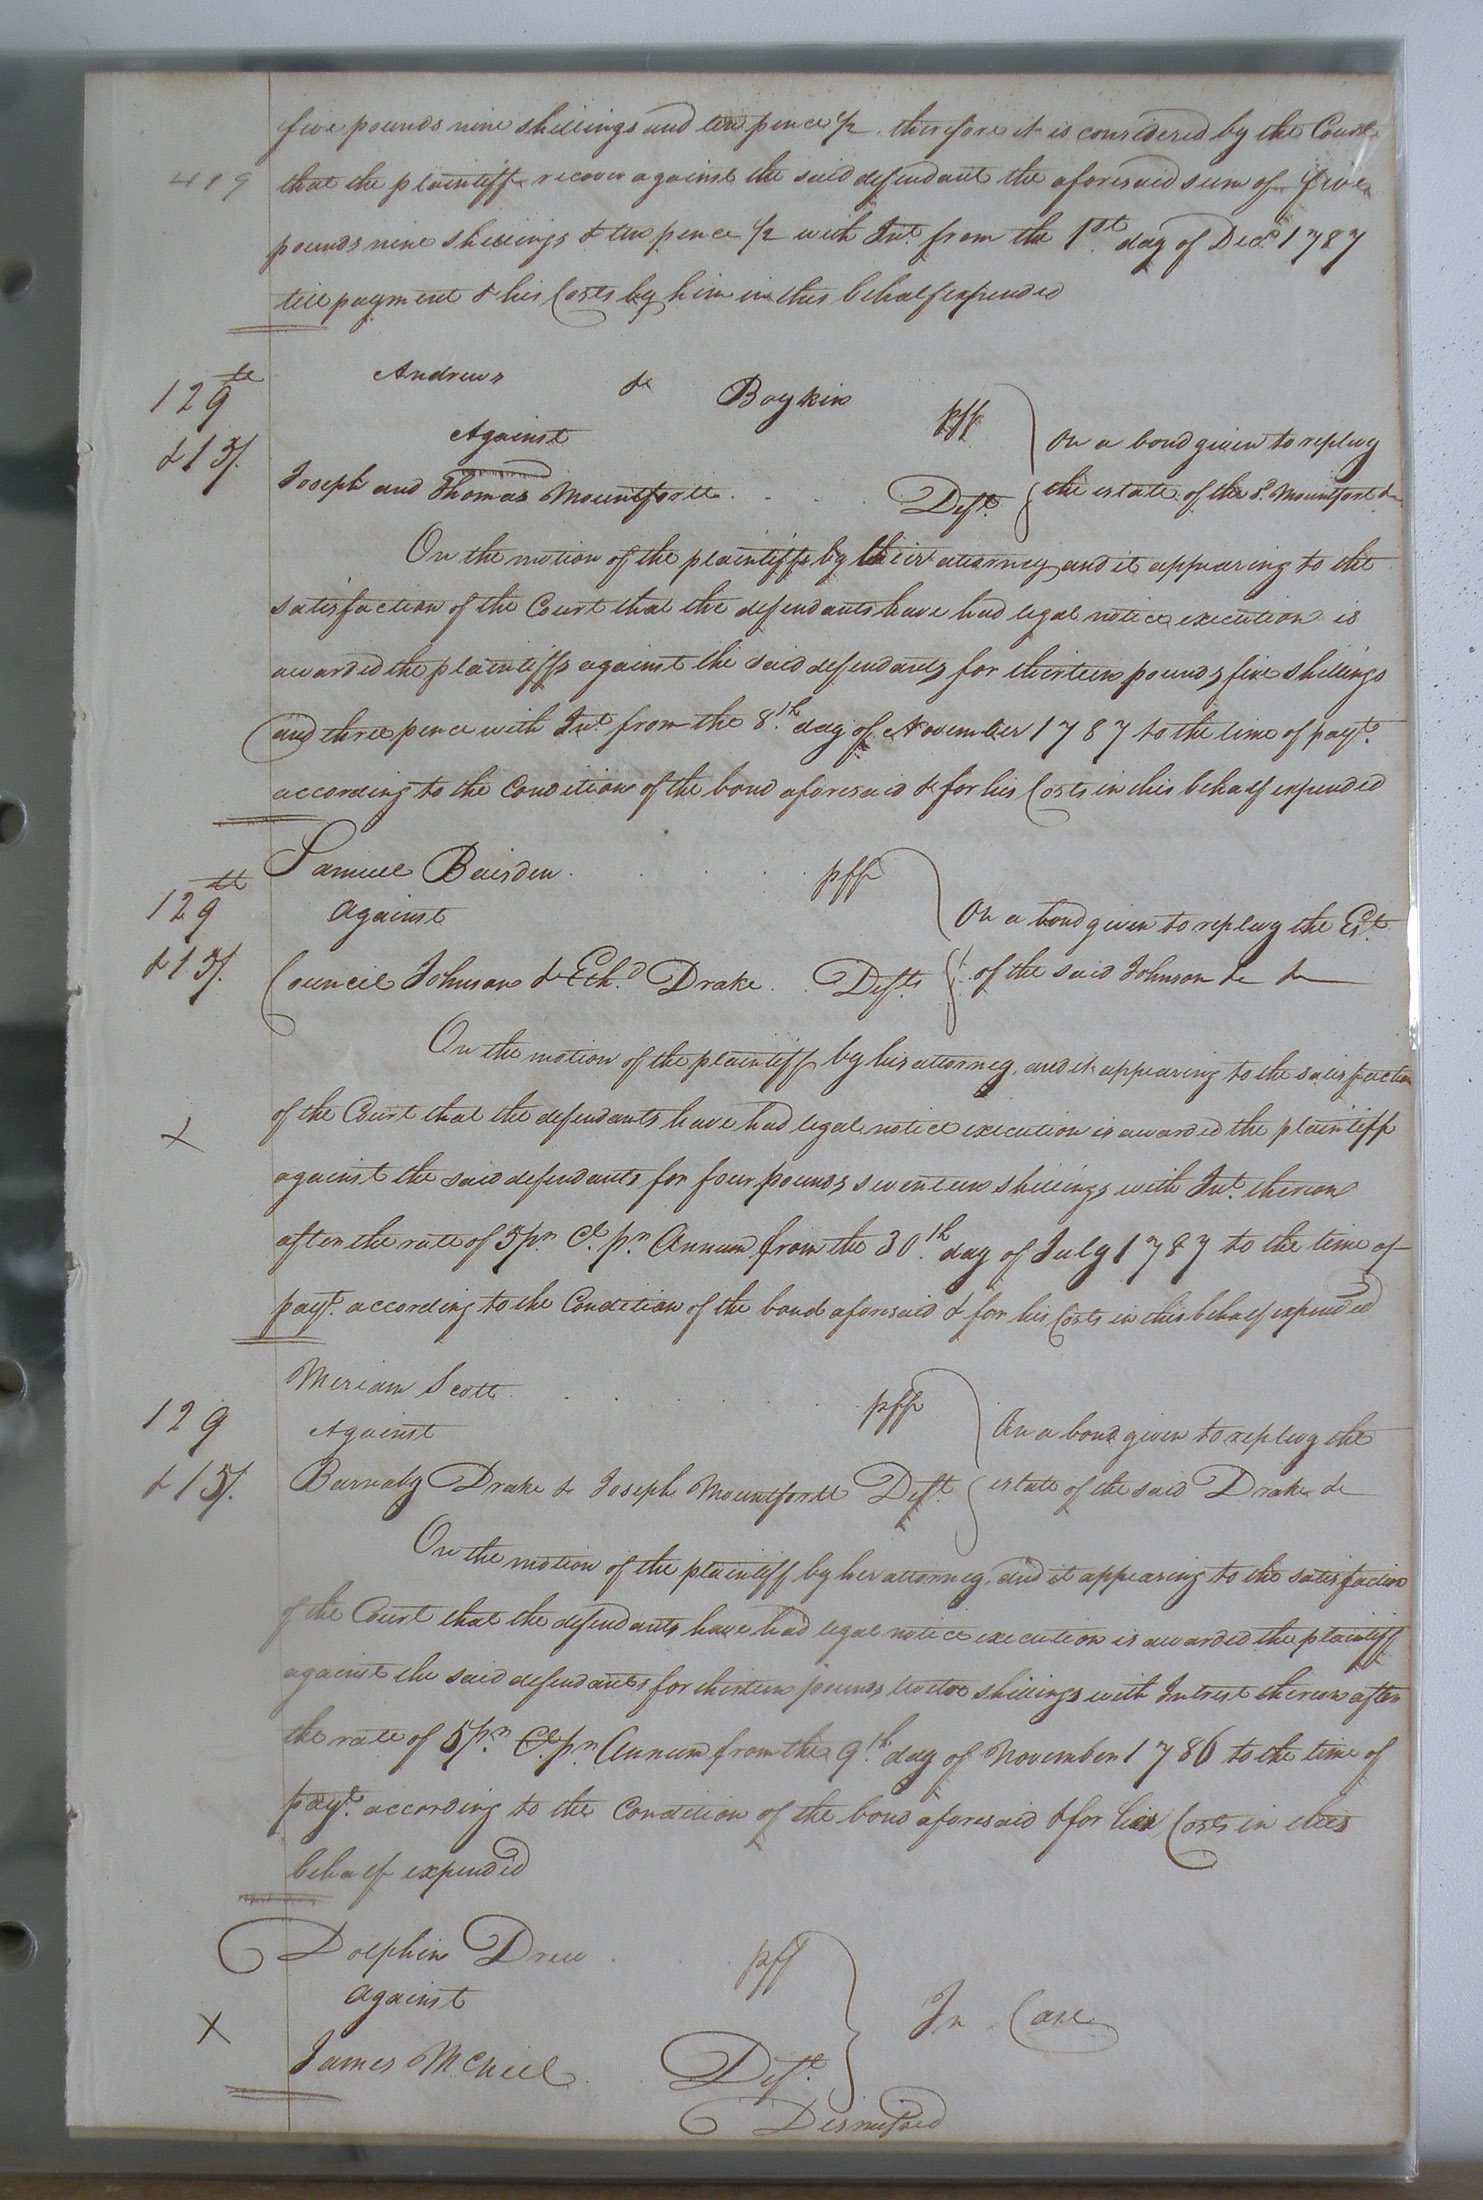 five pounds nine shillings and two pence ½ therefore it is considered by the Court
419 that the plaintiff recover against the said defendant the aforesaid sum of five
pounds nine shillings & two pence ½ with Int. from the 1st day of Decr 1787
till payment & his Costs by him in this behalf expended
Andrews & Boykin pff
129 lb
& 15/.
Against
On a bond given to replevy
Joseph and Thomas Mountfortt . . . . Deft. the estate of the sd. Mountfort &c
On the motion of the plaintiffs by their attorney and it appearing to the
satisfaction of the Court that the defendants have had legal notice execution is
awarded the plaintiffs against the said defendants for thirteen pounds five shillings
and three pence with Int. from the 8th day of November 1787 to the time of payt.
according to the Condition of the bond aforesaid & for his Costs in this behalf expended
Samuel Bairden . . . . pff
129 lb
& 15/.
against On a bond given to replevy the Est.
Council Johnson & Drake . . Defts of the said Johnson &c &c
On the motion of the plaintiff by his attorney, and it appearing to the satisfaction
x of the Court that the defendants have had legal notice execution is awarded the plaintiff
against the said defendants for four pounds seventeen shillings with Int. thereon
after the rate of 5 pr. Ct. pr. Annum from the 30th day of July 1787 to the time of
payt. according to the Condition of the bond aforesaid & for his Costs in this behalf expended
Meriam Scott . . . . pff
129
& 15/.
Against On a bond given to replevy the
Barnaby Drake & Joseph Mountfortt Deft. estate of the said Drake &c
On the motion of the plaintiff by her attorney, and it appearing to the satisfaction
of the Court that the defendants have had legal notice execution is awarded the plaintiff
against the said defendants for thirteen pounds twelve shillings with Intrest thereon after
the rate of 5 pr. Ct. pr Annum from the 9th day of November 1786 to the time of
payt. according to the Condition of the bond aforesaid & for her Costs in this
behalf expended
Dolphin Drew . . . pff
against
In Case
x James McNeil . . Deft.
Dismissed